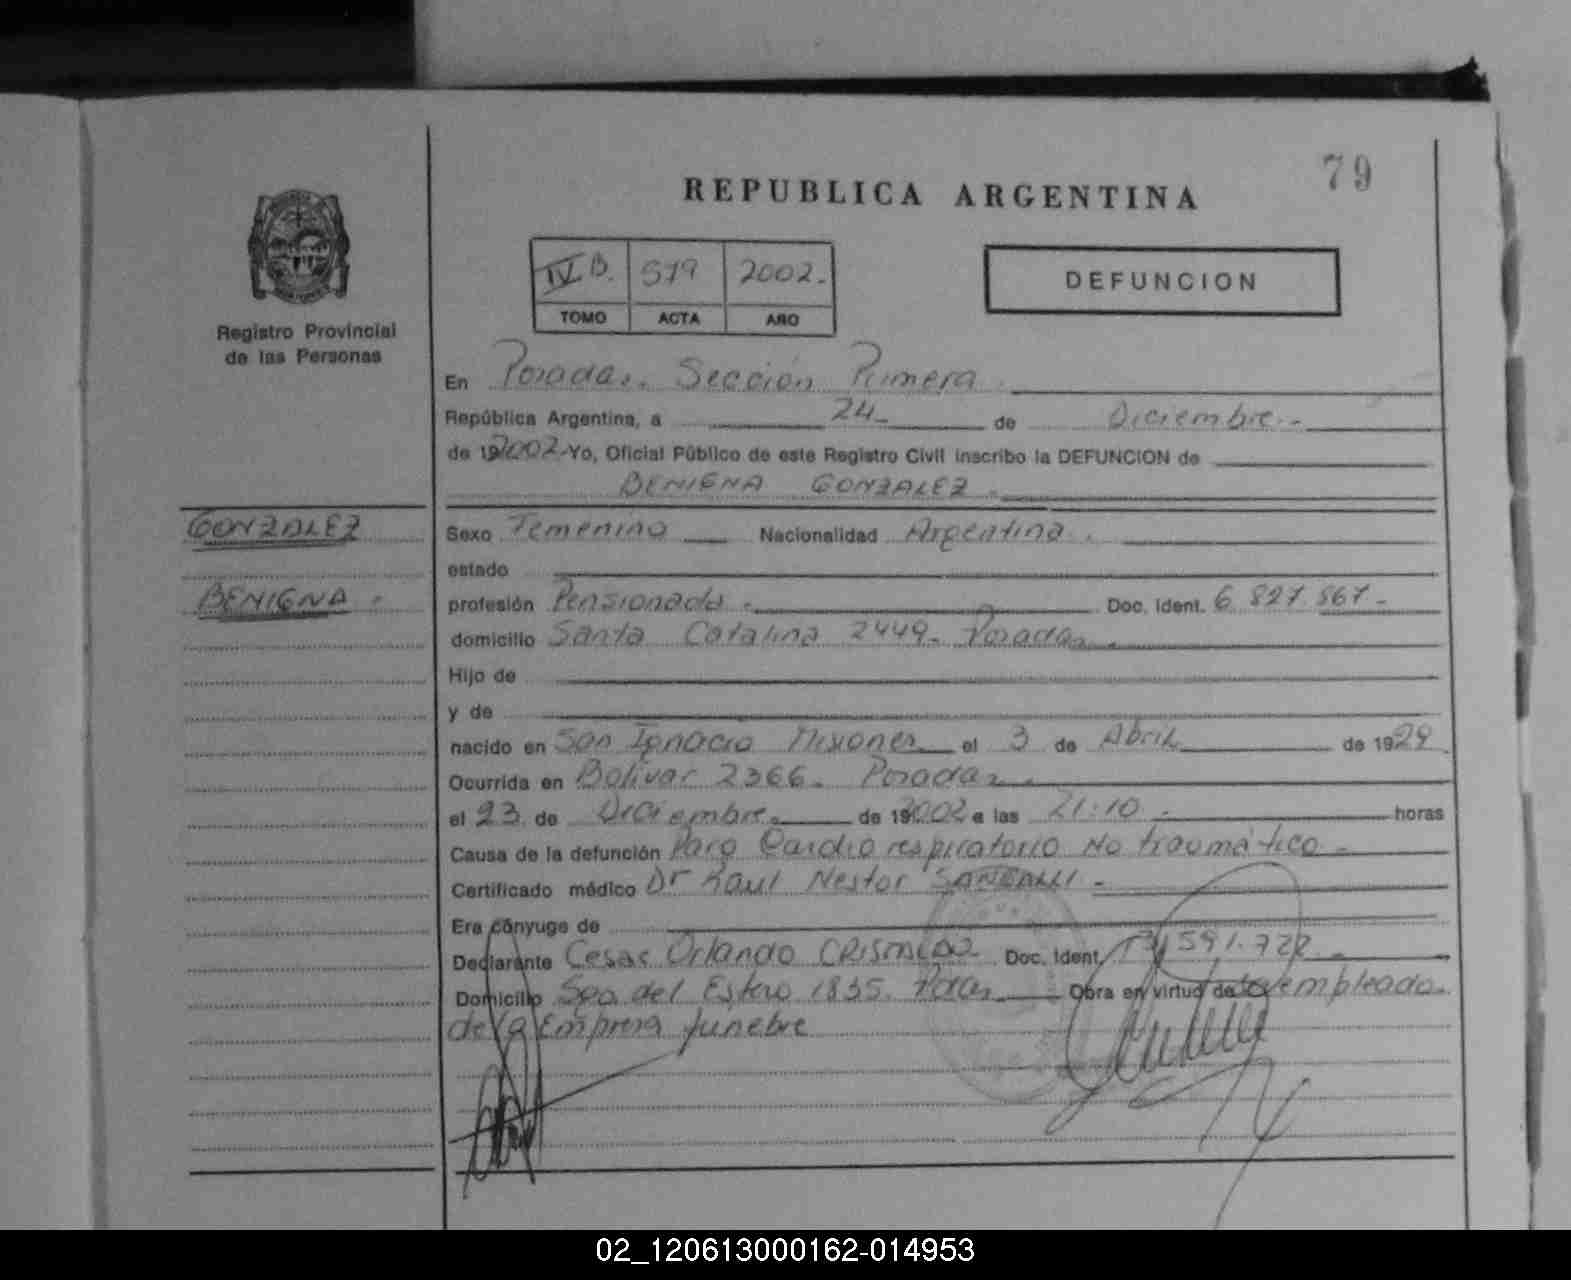 79
REPUBLICA ARGENTINA
IV B. 579 2002.
TOMO ACTA AÑO
DEFUNCION
Registro Provincial
de las Personas
En Posadas. Sección Primera.
República Argentina, a 24 de Diciembre.
de 192002 Yo, Oficial Público de este Registro Civil inscribo la DEFUNCION de
BENIGNA GONZALEZ.
GONZALEZ
BENIGNA.
Sexo Femenino Nacionalidad Argentina.
estado
profesión Pensionada. Doc. Ident. 6.827.567
domicilio Santa Catalina 2449. Posadas.
Hijo de
y de
nacido en San Ignacio Misiones el 3 de Abril de 1929
Ocurrida en Bolivar 2366. Posadas.
el 23 de Diciembre. de 192002 a las 21:10 horas
Causa de la defunción Paro Cardio respiratorio No traumático
Certificado médico Dr Raul Nestor
Era cónyuge de
Declarante Cesar Orlando Doc. Ident.
Domicilio Sgo. del Estero 1835. Posadas Obra en virtud de empleado
de la Empresa funebre
02_120613000162-014953